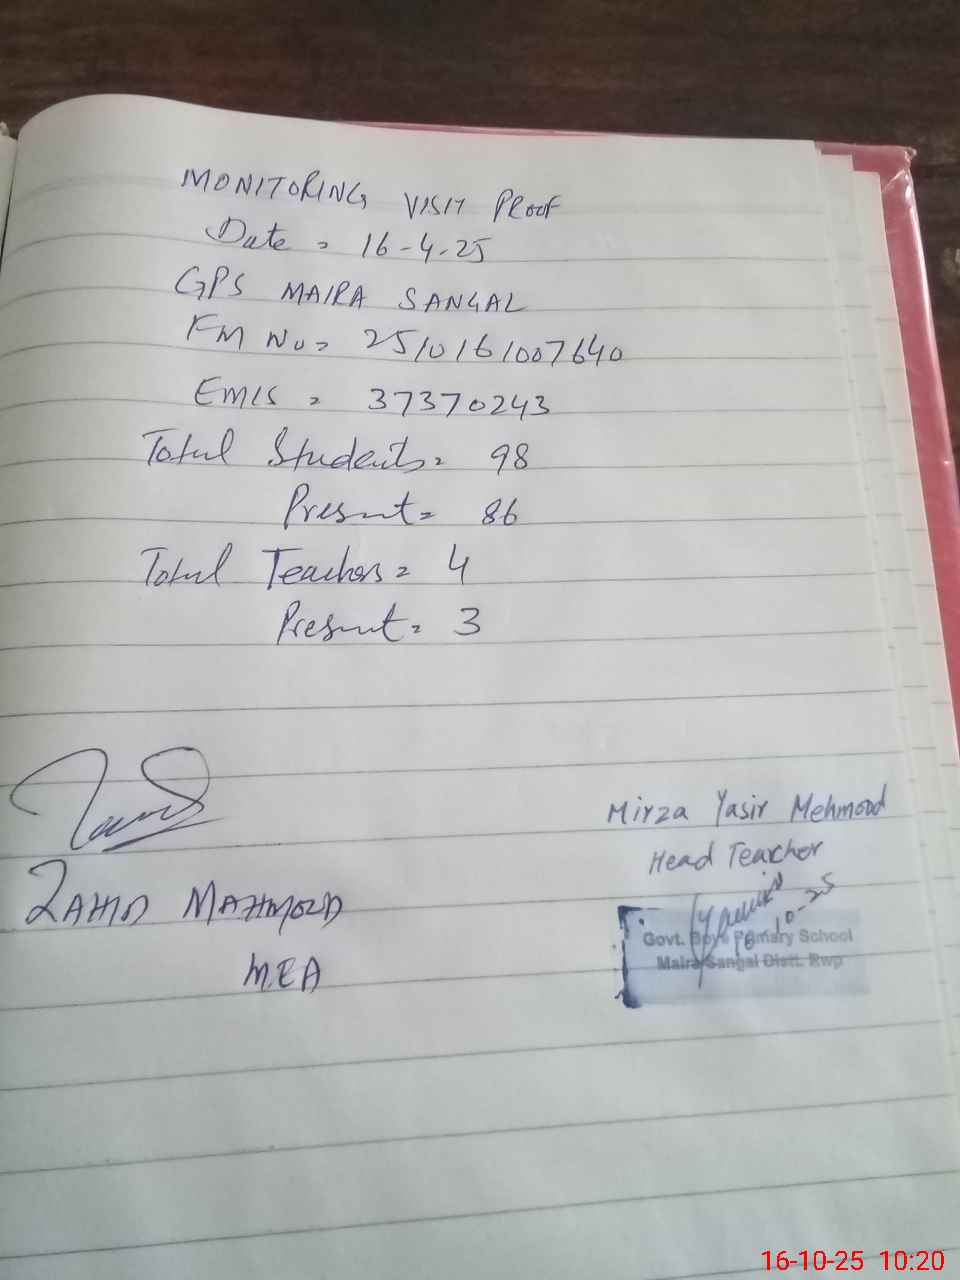 MONITORING VISIT PROOF
Date = 16-4-25
GPS MAIRA SANGAL
FM No = 2510161007640
EMIS = 37370243
Total Students = 98
Present = 86
Total Teachers = 4
Present = 3
ZAHID MAHMOOD
M.E.A
Mirza Yasir Mehmood
Head Teacher
16-10-25
Govt. Boys Primary School
Maira Sangal Distt. Rwp
16-10-25 10:20